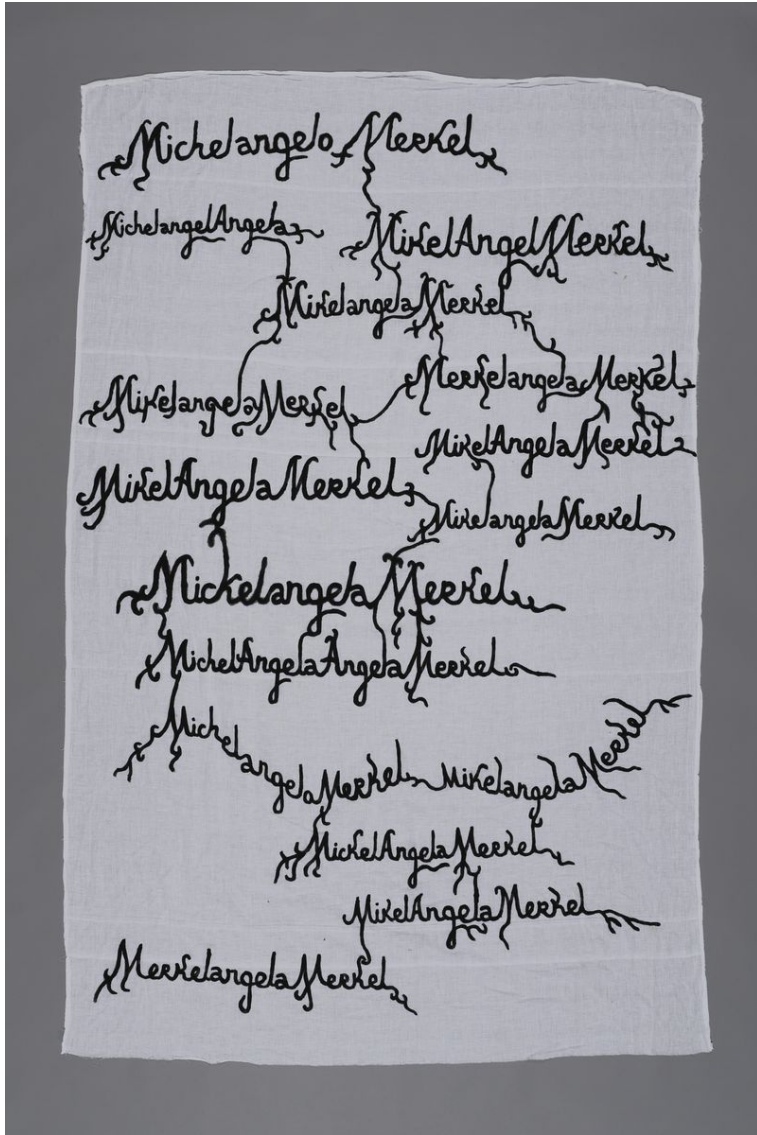 Michelangelo Merkel
MichelangelAngela
MikelAngelMerkel
Mikelangela Merkel
Merkelangela Merkel
Mikelangela Merkel
MikelAngela Merkel
MikelAngela Merkel
Mikelangela Merkel
Mickelangela Merkel
MichelAngela Angela Merkel
Michelangela Merkel Mikelangela Merkel
MickelAngela Merkel
MikelAngela Merkel
Merkelangela Merkel